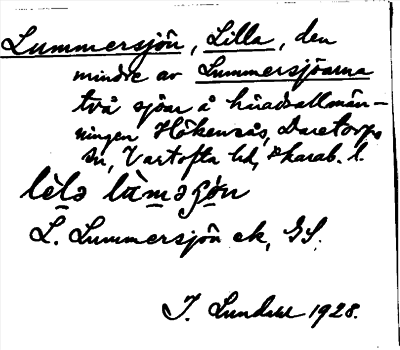 Lummersjön, Lilla, den
mindre av Lummersjöarna
två sjöar å häradsallmän-
ningen Hökensås, Daretorps
sn, Vartofta hd, Skarab. l.
lìlə lùməʃön
L. Lummersjön ek, GS.
J. Lundahl 1928.